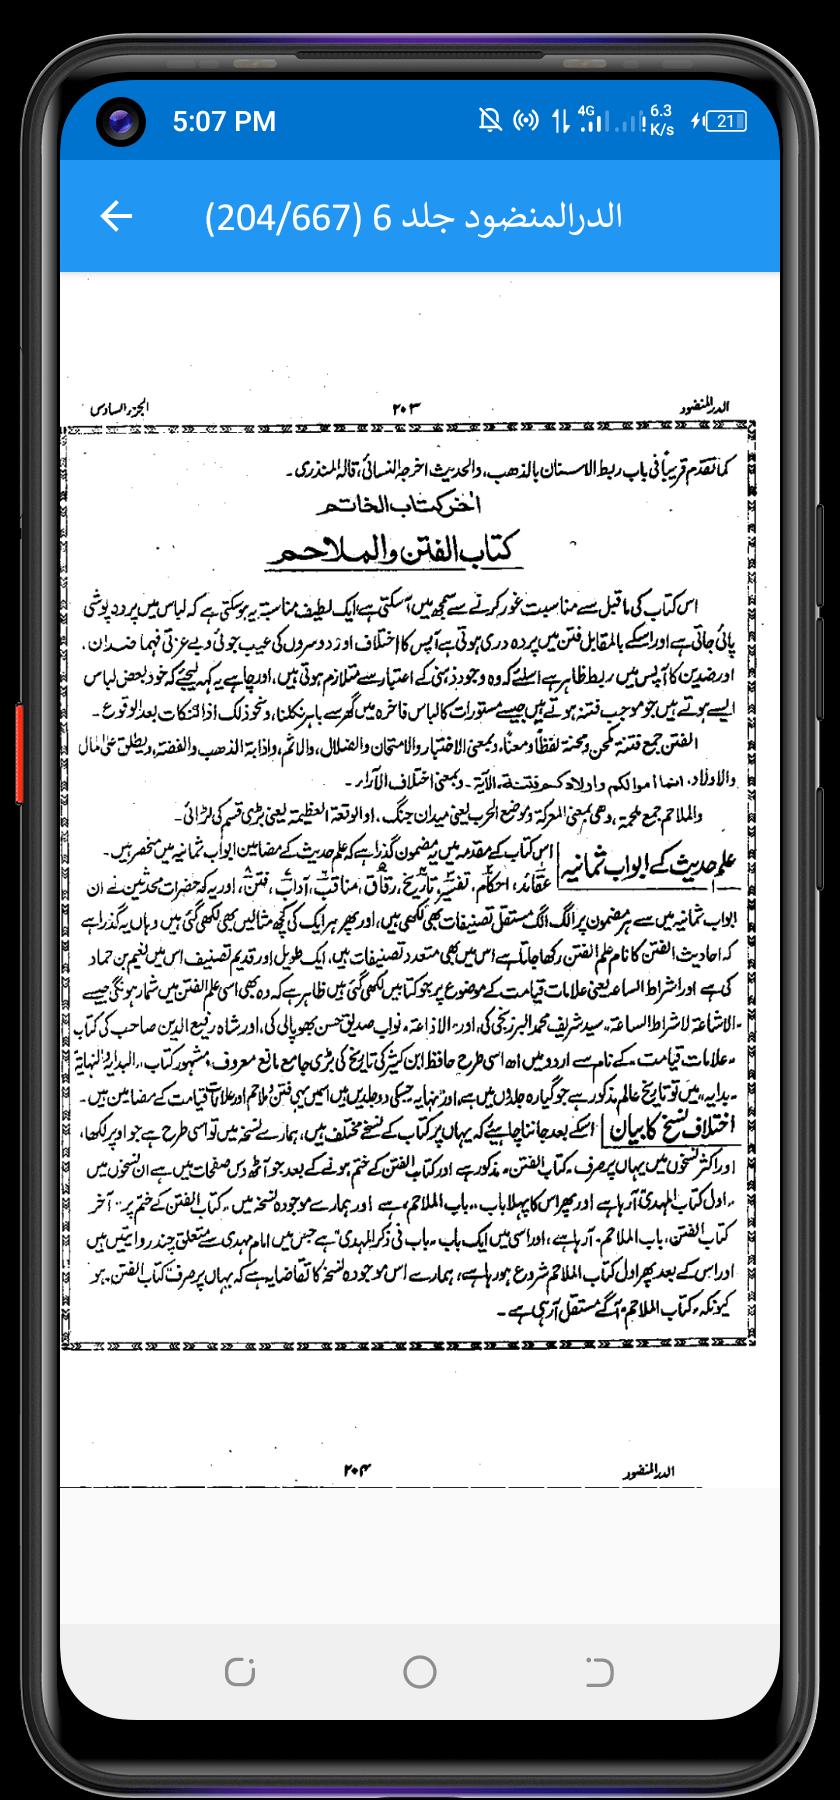 5:07 PM
4G 6.3 K/s 21
الدرالمنضود جلد 6 (204/667)
الدرالمنضود ۲۰۳ الجزء السادس
کما تقدم قریباً فی باب ربط الاسنان بالذھب، والحدیث اخرجہ النسائی، قالہ المنذری۔
اٰخر کتاب الخاتم
کتاب الفتن والملاحم
اس کتاب کی ماقبل سے مناسبت غور کرنے سے سمجھ میں آسکتی ہے، ایک لطیف مناسبت یہ ہوسکتی ہے کہ لباس میں پردہ پوشی
پائی جاتی ہے اور اسکے بالمقابل فتن میں پردہ دری ہوتی ہے آپس کا اختلاف اور دوسروں کی عیب جوئی و بے عزتی فہما ضدان،
اور ضدین کا آپس میں ربط ظاہر ہے اسلئے کہ وہ وجود ذہنی کے اعتبار سے متلازم ہوتی ہیں، اور چاہے یہ کہہ لیجئے کہ خود بعض لباس
ایسے ہوتے ہیں جو موجب فتنہ ہوتے ہیں جیسے مستورات کا لباس فاخرہ میں گھر سے باہر نکلنا، ونحو ذلک اذ النکات بعد الوقوع۔
الفتن جمع فتنۃ کمحن ومحنۃ لفظاً ومعناً، وبمعنی الاختبار والامتحان والضلال، والاثم، واذابۃ الذھب والفضۃ، ویطلق علی المال
والاولاد، انما اموالکم واولادکم فتنۃ۔ الآیۃ۔ وبمعنی اختلاف الآراء۔
والملاحم جمع ملحمۃ، وھی بمعنی المعرکۃ وموضع الحرب یعنی میدان جنگ، او الوقعۃ العظیمۃ یعنی بڑی قسم کی لڑائی۔
علم حدیث کے ابواب ثمانیہ اس کتاب کے مقدمہ میں یہ مضمون گذرا ہے کہ علم حدیث کے مضامین ابواب ثمانیہ میں منحصر ہیں۔
عقائد، احکام، تفسیر، تاریخ، رقاق، مناقب، آداب، فتن، اور یہ کہ حضرات محدثین نے ان
ابواب ثمانیہ میں سے ہر مضمون پر الگ الگ مستقل تصنیفات بھی لکھی ہیں، اور پھر ہر ایک کی کچھ مثالیں بھی لکھی گئی ہیں وہاں یہ گذرا ہے
کہ احادیث الفتن کا نام علم الفتن رکھا جاتا ہے اس میں بھی متعدد تصنیفات ہیں، ایک طویل اور قدیم تصنیف اس میں نعیم بن حماد
کی ہے اور اشراط الساعۃ یعنی علامات قیامت کے موضوع پر جو کتابیں لکھی گئی ہیں ظاہر ہے کہ وہ بھی اسی علم الفتن میں شمار ہونگی جیسے
"الاشاعۃ لاشراط الساعۃ" سید شریف محمد البرزنجی کی، اور "الاذاعۃ" نواب صدیق حسن بھوپالی کی، اور شاہ رفیع الدین صاحب کی کتاب
"علامات قیامت" کے نام سے اردو میں اھ اسی طرح حافظ ابن کثیر کی تاریخ کی بڑی جامع مانع معروف و مشہور کتاب "البدایۃ والنہایۃ"
"بدایہ" میں تو تاریخ عالم مذکور ہے جو گیارہ جلدوں میں ہے، اور "نہایہ" جسکی دو جلدیں ہیں اسمیں یہی فتن و ملاحم اور علامات قیامت کے مضامین ہیں۔
اختلاف نسخ کا بیان اسکے بعد جاننا چاہیئے کہ یہاں پر کتاب کے نسخے مختلف ہیں، ہمارے نسخہ میں تو اسی طرح ہے جو اوپر لکھا،
اور اکثر نسخوں میں یہاں پر صرف "کتاب الفتن" مذکور ہے اور کتاب الفتن کے ختم ہونے کے بعد جو آٹھ دس صفحات میں ہے ان نسخوں میں
"اول کتاب المہدی" آرہا ہے اور پھر اس کا پہلا باب "باب الملاحم" ہے اور ہمارے موجودہ نسخہ میں "کتاب الفتن" کے ختم پر "آخر
کتاب الفتن، باب الملاحم" آرہا ہے، اور اسی میں ایک باب "باب فی ذکر المہدی" ہے جس میں امام مہدی سے متعلق چند روایتیں ہیں
اور اس کے بعد پھر اول کتاب الملاحم شروع ہورہا ہے، ہمارے اس موجودہ نسخہ کا تقاضا یہ ہے کہ یہاں پر صرف "کتاب الفتن" ہو
کیونکہ "کتاب الملاحم" آگے مستقل آرہی ہے۔
الدرالمنضود ۲۰۴